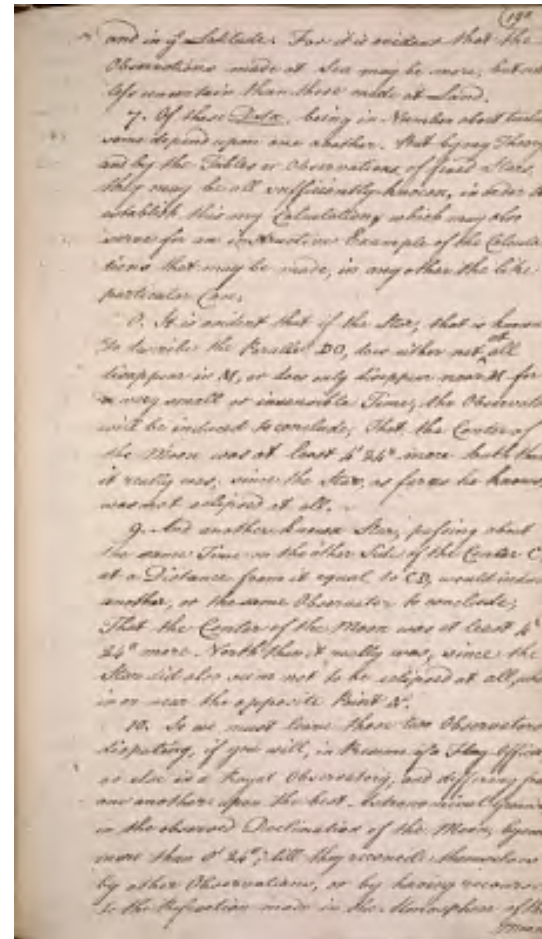 and in ye Latitude. For it is evident that the
Observations made at Sea may be more, but not
less uncertain than those made at Land.
7. Of these Data, being in Number about
some depend upon one another. But by my Theory
and by the Tables or Observations of fixed Stars,
they may be all sufficiently known, in order to
establish this my Calculation, which may also
serve for an instructive Example of the Calcula
tions that may be made, in any other the like
particular Case.
8. It is evident that if the Star, that is known
to describe the Parallel DO, does either not at all
disappear in M, or does only disappear near M for
a very small or insensible Time, the Observator
will be induced to conclude; That the Center of
the Moon was at least 4' 24" more South than
it really was; since the Star, as far as he knows,
was not eclipsed at all.
9. And another known Star, passing about
the same Time on the other Side of the Center C,
at a Distance from it equal to CD, would induce
another, or the same Observator to conclude;
That the Center of the Moon was at least 4'
24" more North than it really was, since the
Star did also seem not to be eclipsed at all,
in or near the opposite Point
10. So we must leave these two Observators
disputing, if you will, in Presence of a Flag Officer
or else in a Royal Observatory, and differing from
one another upon the best Astronomical
in the observed Declination of the Moon, by
more than 8' 24"; till they reconcile themselves
by other Observations, or by having recourse
to the Refraction made in the Atmosphere of the
Moon